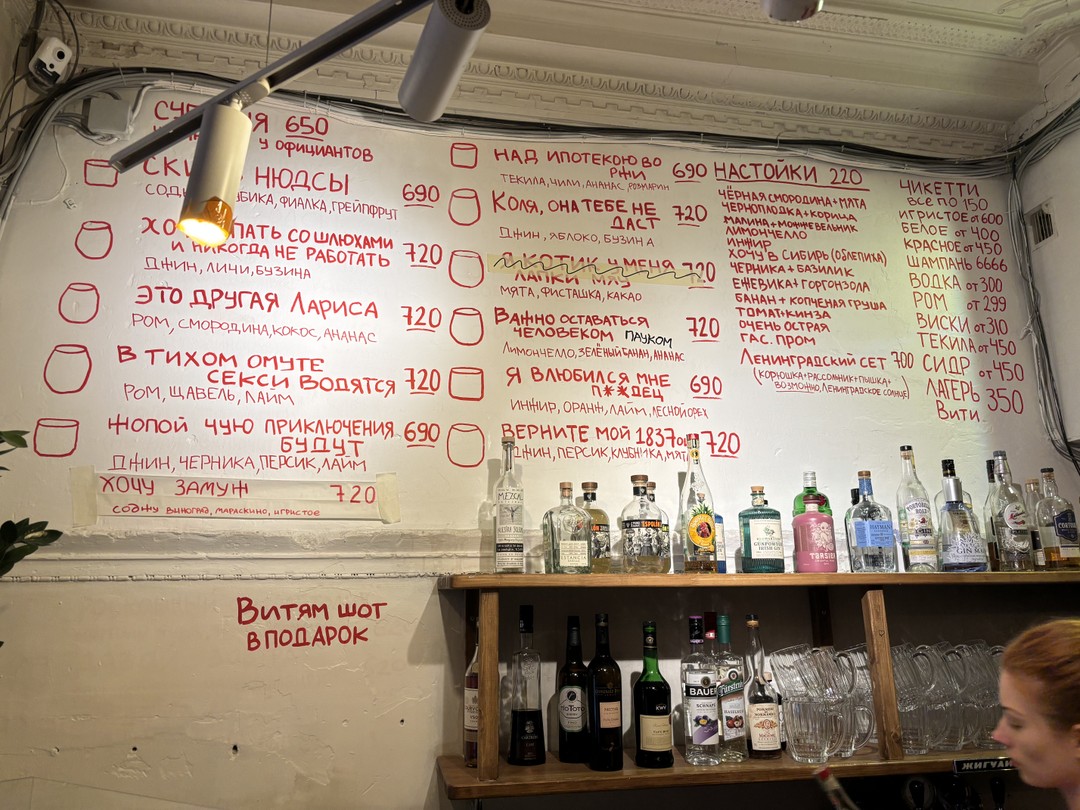 650
у официантов
НЮДСЫ 690
фиалка, грейпфрут
со шлюхами
и никогда не работать 720
Джин, личи, бузина
Это другая Лариса 720
Ром, смородина, кокос, ананас
В тихом омуте
секси водятся 720
Ром, щавель, лайм
Жопой чую приключения 690
будут
Джин, черника, персик, лайм
Хочу замуж 720
соджу виноград, мараскино, игристое
Витям шот
в подарок
Над ипотекою во 690
ржи
Текила, чили, ананас, розмарин
Коля, она тебе не 720
даст
Джин, яблоко, бузина
А котик у меня 720
лапки мяу
Мята, фисташка, какао
Важно оставаться 720
человеком пауком
Лимончелло, зелёный банан, ананас
Я влюбился мне 690
п**дец
Инжир, оранж, лайм, лесной орех
Верните мой 1837ой 720
Джин, персик, клубника, мята
Настойки 220
Чёрная смородина + мята
Черноплодка + корица
Малина + можжевельник
Лимончелло
Инжир
Хочу в Сибирь (облепиха)
Черника + базилик
Ежевика + горгонзола
Банан + копченая груша
Томат + кинза
Очень острая
Гас. пром
Ленинградский сет 700
(корюшка + рассольник + пышка +
возможно, ленинградское солнце)
Чикетти
все по 150
Игристое от 600
Белое от 400
Красное от 450
Шампань 6666
Водка от 300
Ром от 299
Виски от 310
Текила от 450
Сидр от 450
Лагерь 350
Вити
MEZCAL
ESPOLÒN
TARSIER
BAUER
SCHNAPS
KWV
ЖИГУЛИ